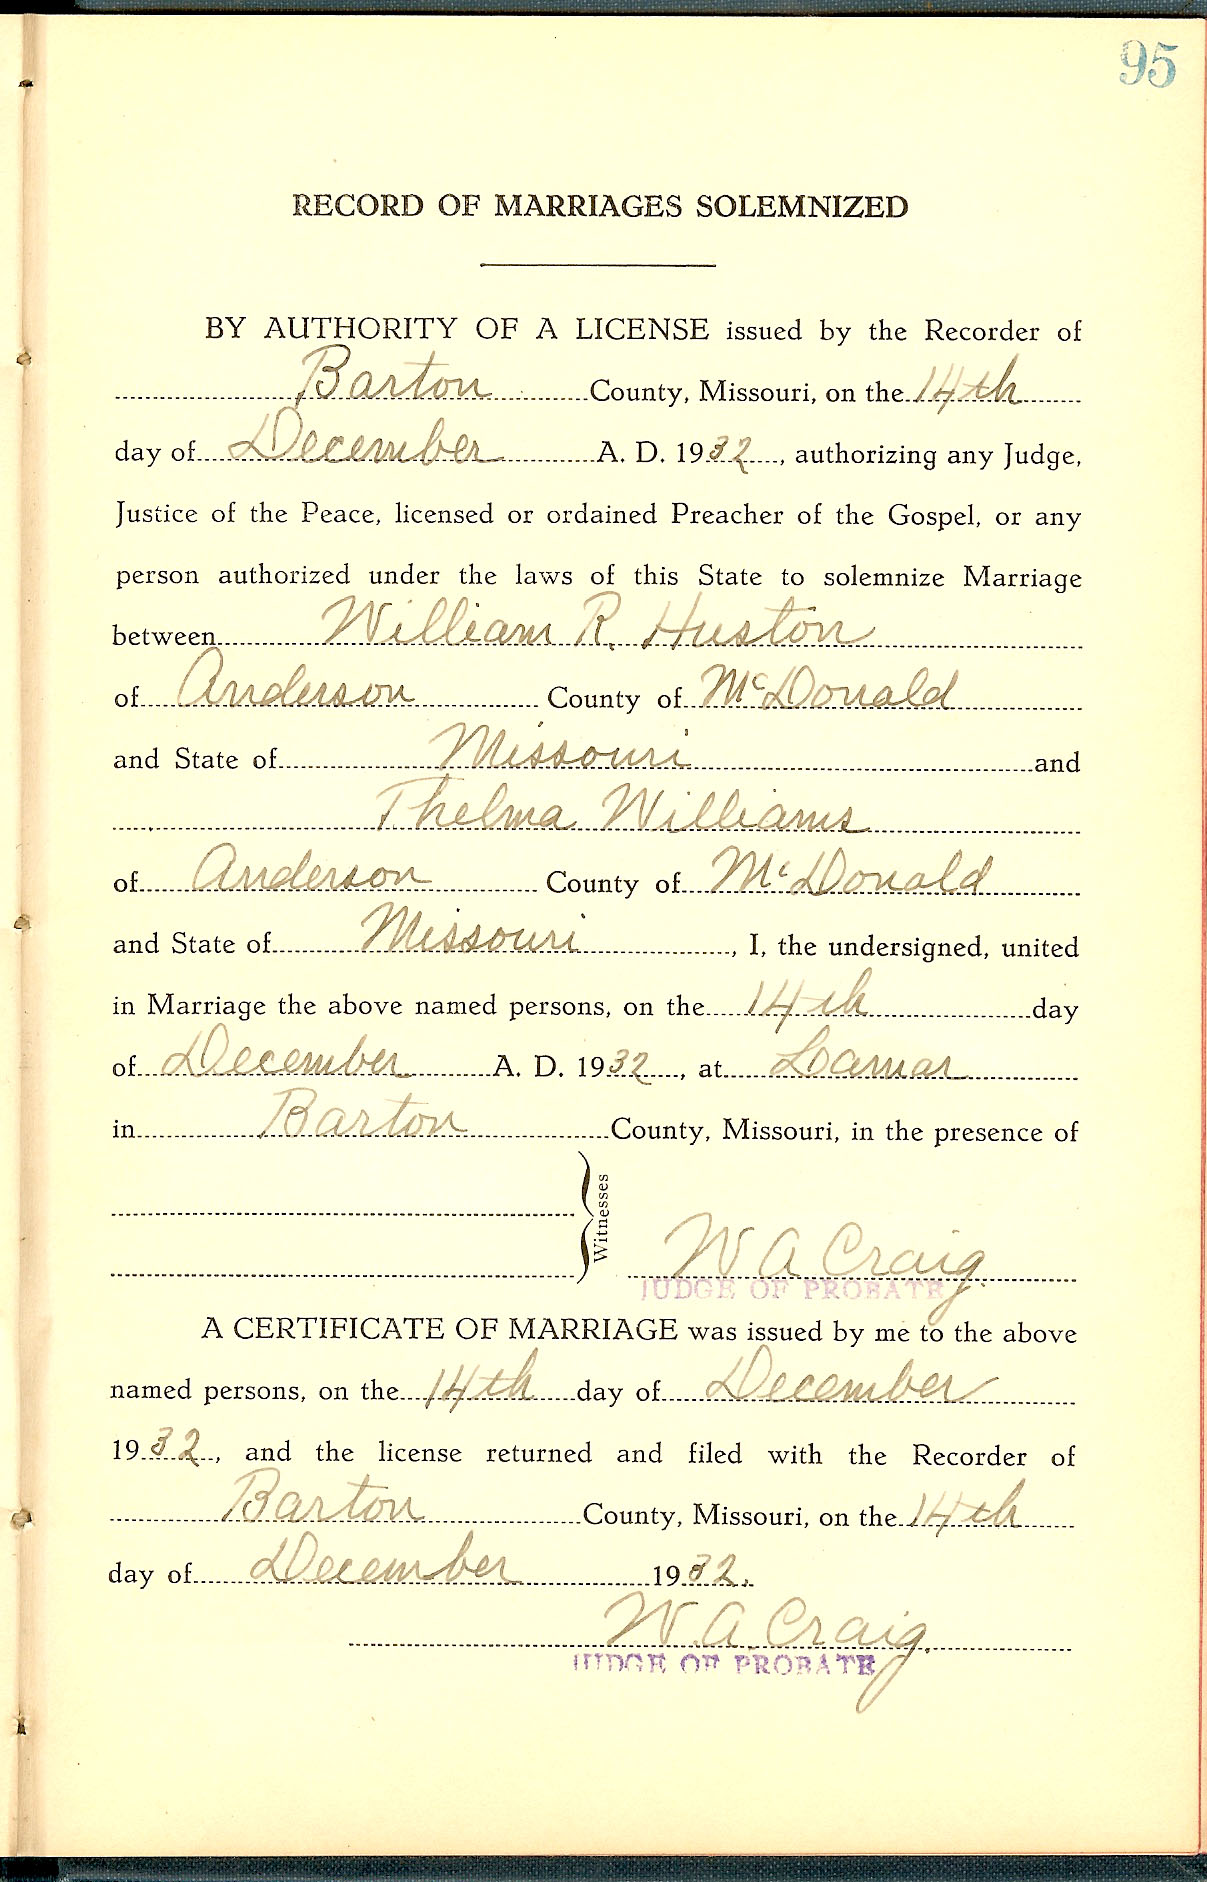 95
RECORD OF MARRIAGES SOLEMNIZED
BY AUTHORITY OF A LICENSE issued by the Recorder of
Barton County, Missouri, on the 14th
day of December A. D. 1932, authorizing any Judge,
Justice of the Peace, licensed or ordained Preacher of the Gospel, or any
person authorized under the laws of this State to solemnize Marriage
between William R. Huston
of Anderson County of McDonald
and State of Missouri and
Thelma Williams
of Anderson County of McDonald
and State of Missouri, I, the undersigned, united
in Marriage the above named persons, on the 14th day
of December A. D. 1932, at Lamar
in Barton County, Missouri, in the presence of
Witnesses
W A Craig
JUDGE OF PROBATE
A CERTIFICATE OF MARRIAGE was issued by me to the above
named persons, on the 14th day of December
1932, and the license returned and filed with the Recorder of
Barton County, Missouri, on the 14th
day of December 1932.
W. A. Craig.
JUDGE OF PROBATE